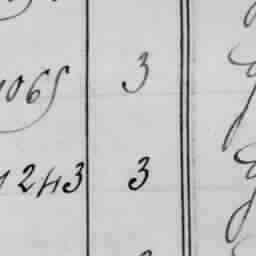 1065 3
1243 3